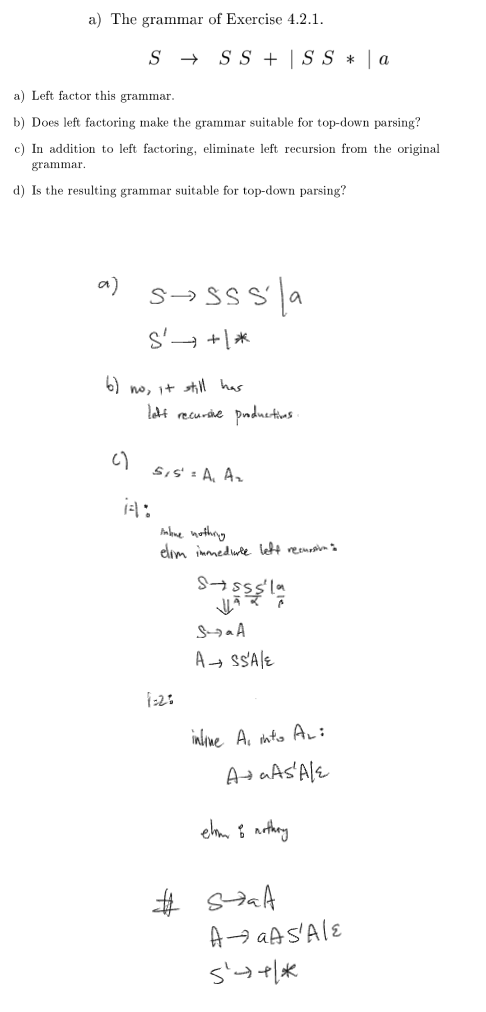 a) The grammar of Exercise 4.2.1.
S → S S + | S S * | a
a) Left factor this grammar.
b) Does left factoring make the grammar suitable for top-down parsing?
c) In addition to left factoring, eliminate left recursion from the original
grammar.
d) Is the resulting grammar suitable for top-down parsing?
a) S → S S S' | a
S' → + | *
b) no, it still has
left recursive productions.
c) S, S' = A₁ A₂
i=1:
inline nothing
elim immediate left recursion:
S → S S S' | a
A α β
⇓
S → a A
A → S S' A | ε
i=2:
inline A₁ into A₂:
A → a A S' A | ε
elim : nothing
# S → a A
A → a A S' A | ε
S' → + | *